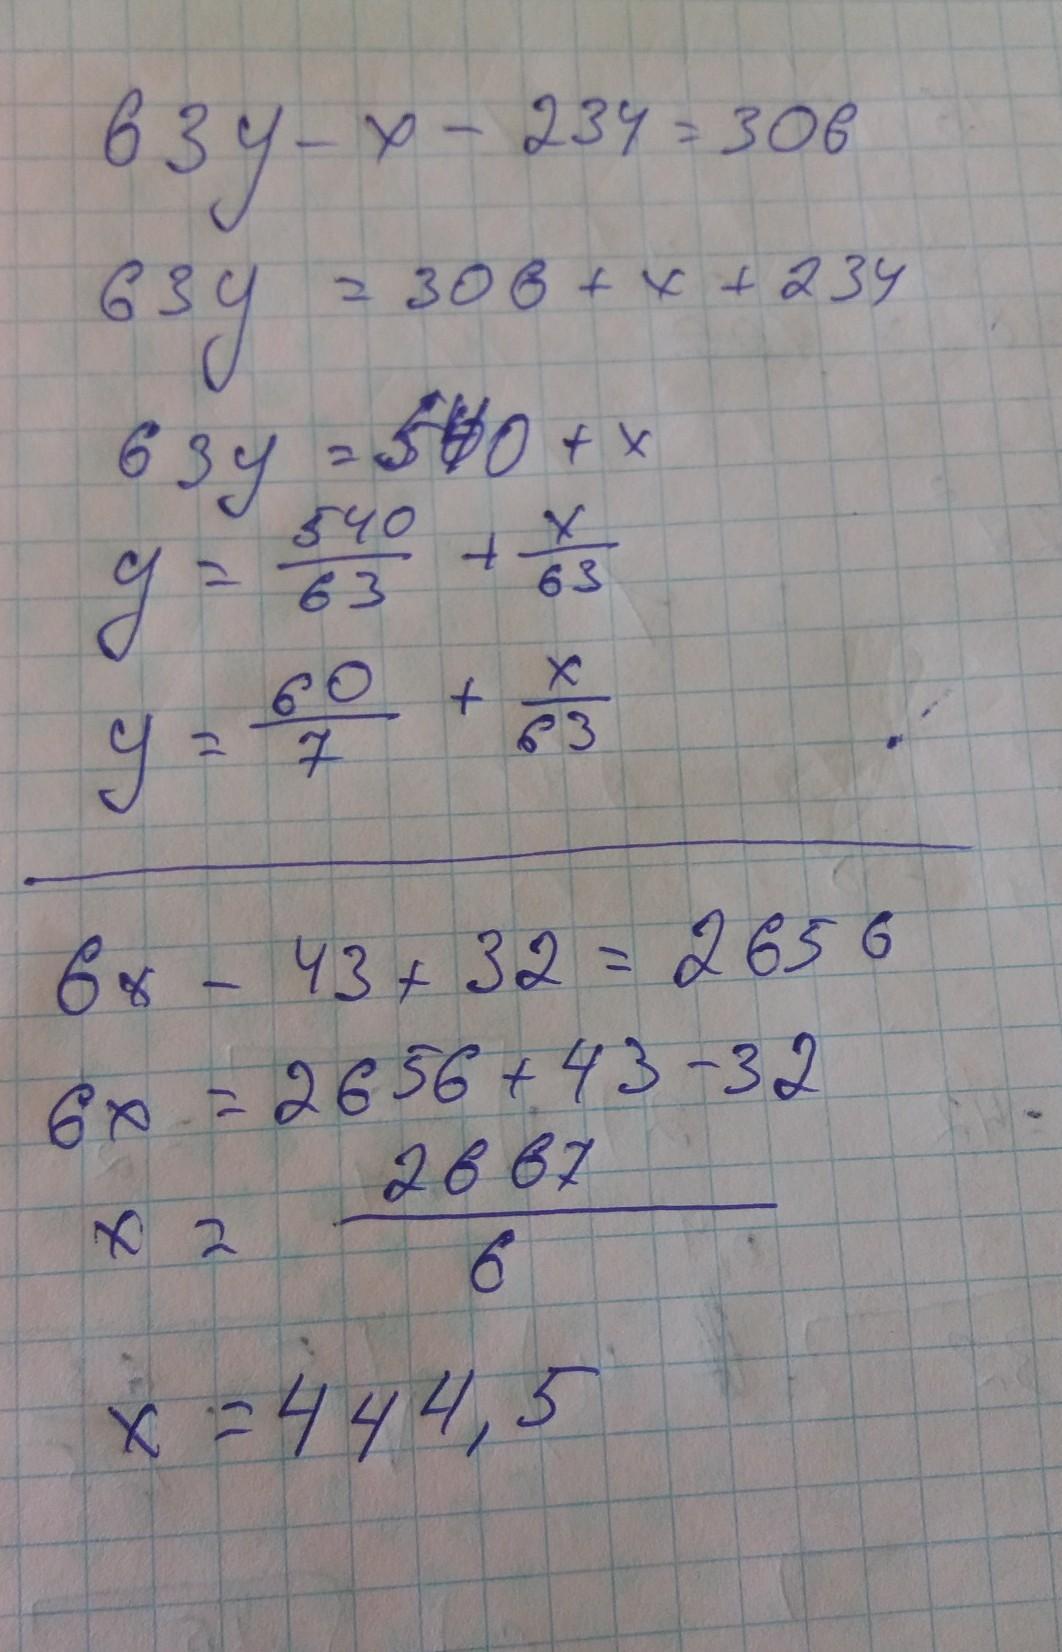 63y - x - 234 = 306
63y = 306 + x + 234
63y = 540 + x
y = 540/63 + x/63
y = 60/7 + x/63
6x - 43 + 32 = 2656
6x = 2656 + 43 - 32
x = 2667/6
x = 444,5